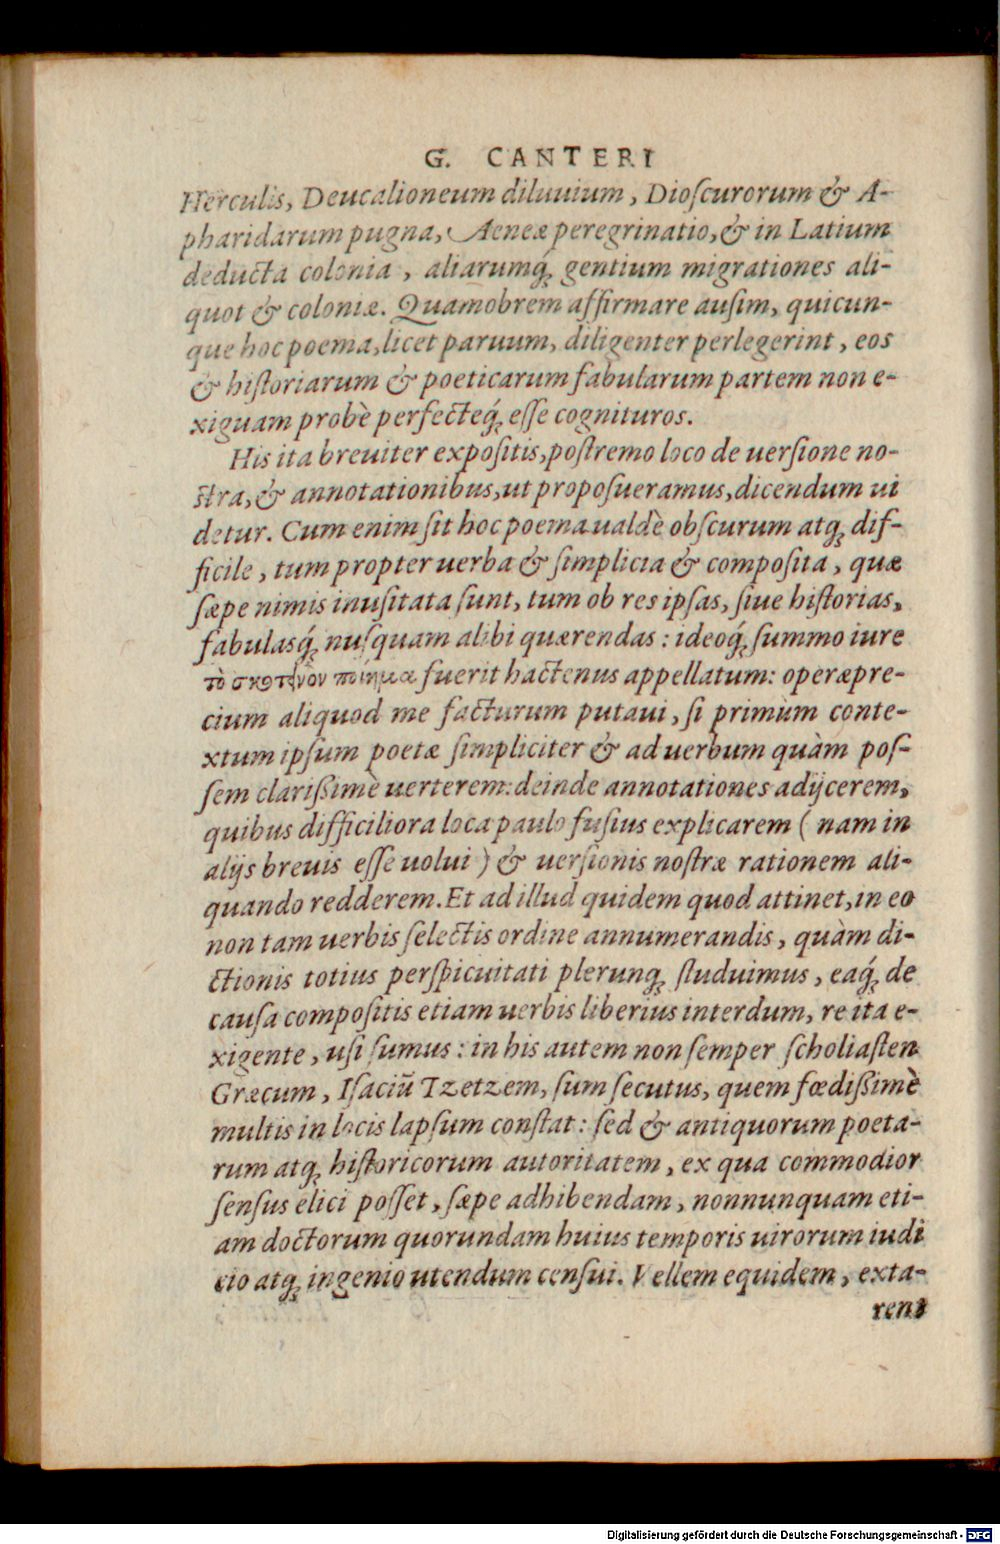 G. CANTERI
Herculis, Deucalioneum diluuium, Dioſcurorum & A-
pharidarum pugna, Aeneæ peregrinatio, & in Latium
deducta colonia, aliarumq́ꝫ gentium migrationes ali-
quot & coloniæ. Quamobrem affirmare auſim, quicun-
que hoc poema, licet paruum, diligenter perlegerint, eos
& hiſtoriarum & poeticarum fabularum partem non e-
xiguam probè perfecteq́ꝫ eſſe cognituros.
His ita breuiter expoſitis, poſtremo loco de uerſione no-
ſtra, & annotationibus, ut propoſueramus, dicendum ui
detur. Cum enim ſit hoc poema ualdè obſcurum atqꝫ dif-
ficile, tum propter uerba & ſimplicia & compoſita, quæ
ſæpe nimis inuſitata ſunt, tum ob res ipſas, ſiue hiſtorias,
fabulasq́ꝫ nuſquam alibi quærendas: ideoq́ꝫ ſummo iure
τὸ σκοτεινὸν ποίημα fuerit hactenus appellatum: operæpre-
cium aliquod me facturum putaui, ſi primùm conte-
xtum ipſum poetæ ſimpliciter & ad uerbum quàm poſ-
ſem clarißimè uerterem: deinde annotationes adijcerem,
quibus difficiliora loca paulo fuſius explicarem (nam in
alijs breuis eſſe uolui) & uerſionis noſtræ rationem ali-
quando redderem. Et ad illud quidem quod attinet, in eo
non tam uerbis ſelectis ordine annumerandis, quàm di-
ctionis totius perſpicuitati plerunqꝫ ſtuduimus, eaq́ꝫ de
cauſa compoſitis etiam uerbis liberius interdum, re ita e-
xigente, uſi ſumus: in his autem non ſemper ſcholiaſten
Græcum, Iſaciū Tzetzem, ſum ſecutus, quem fœdißimè
multis in locis lapſum conſtat: ſed & antiquorum poeta-
rum atqꝫ hiſtoricorum autoritatem, ex qua commodior
ſenſus elici poſſet, ſæpe adhibendam, nonnunquam eti-
am doctorum quorundam huius temporis uirorum iudi
cio atqꝫ ingenio utendum cenſui. Vellem equidem, exta-
rent
Digitalisierung gefördert durch die Deutsche Forschungsgemeinschaft - DFG